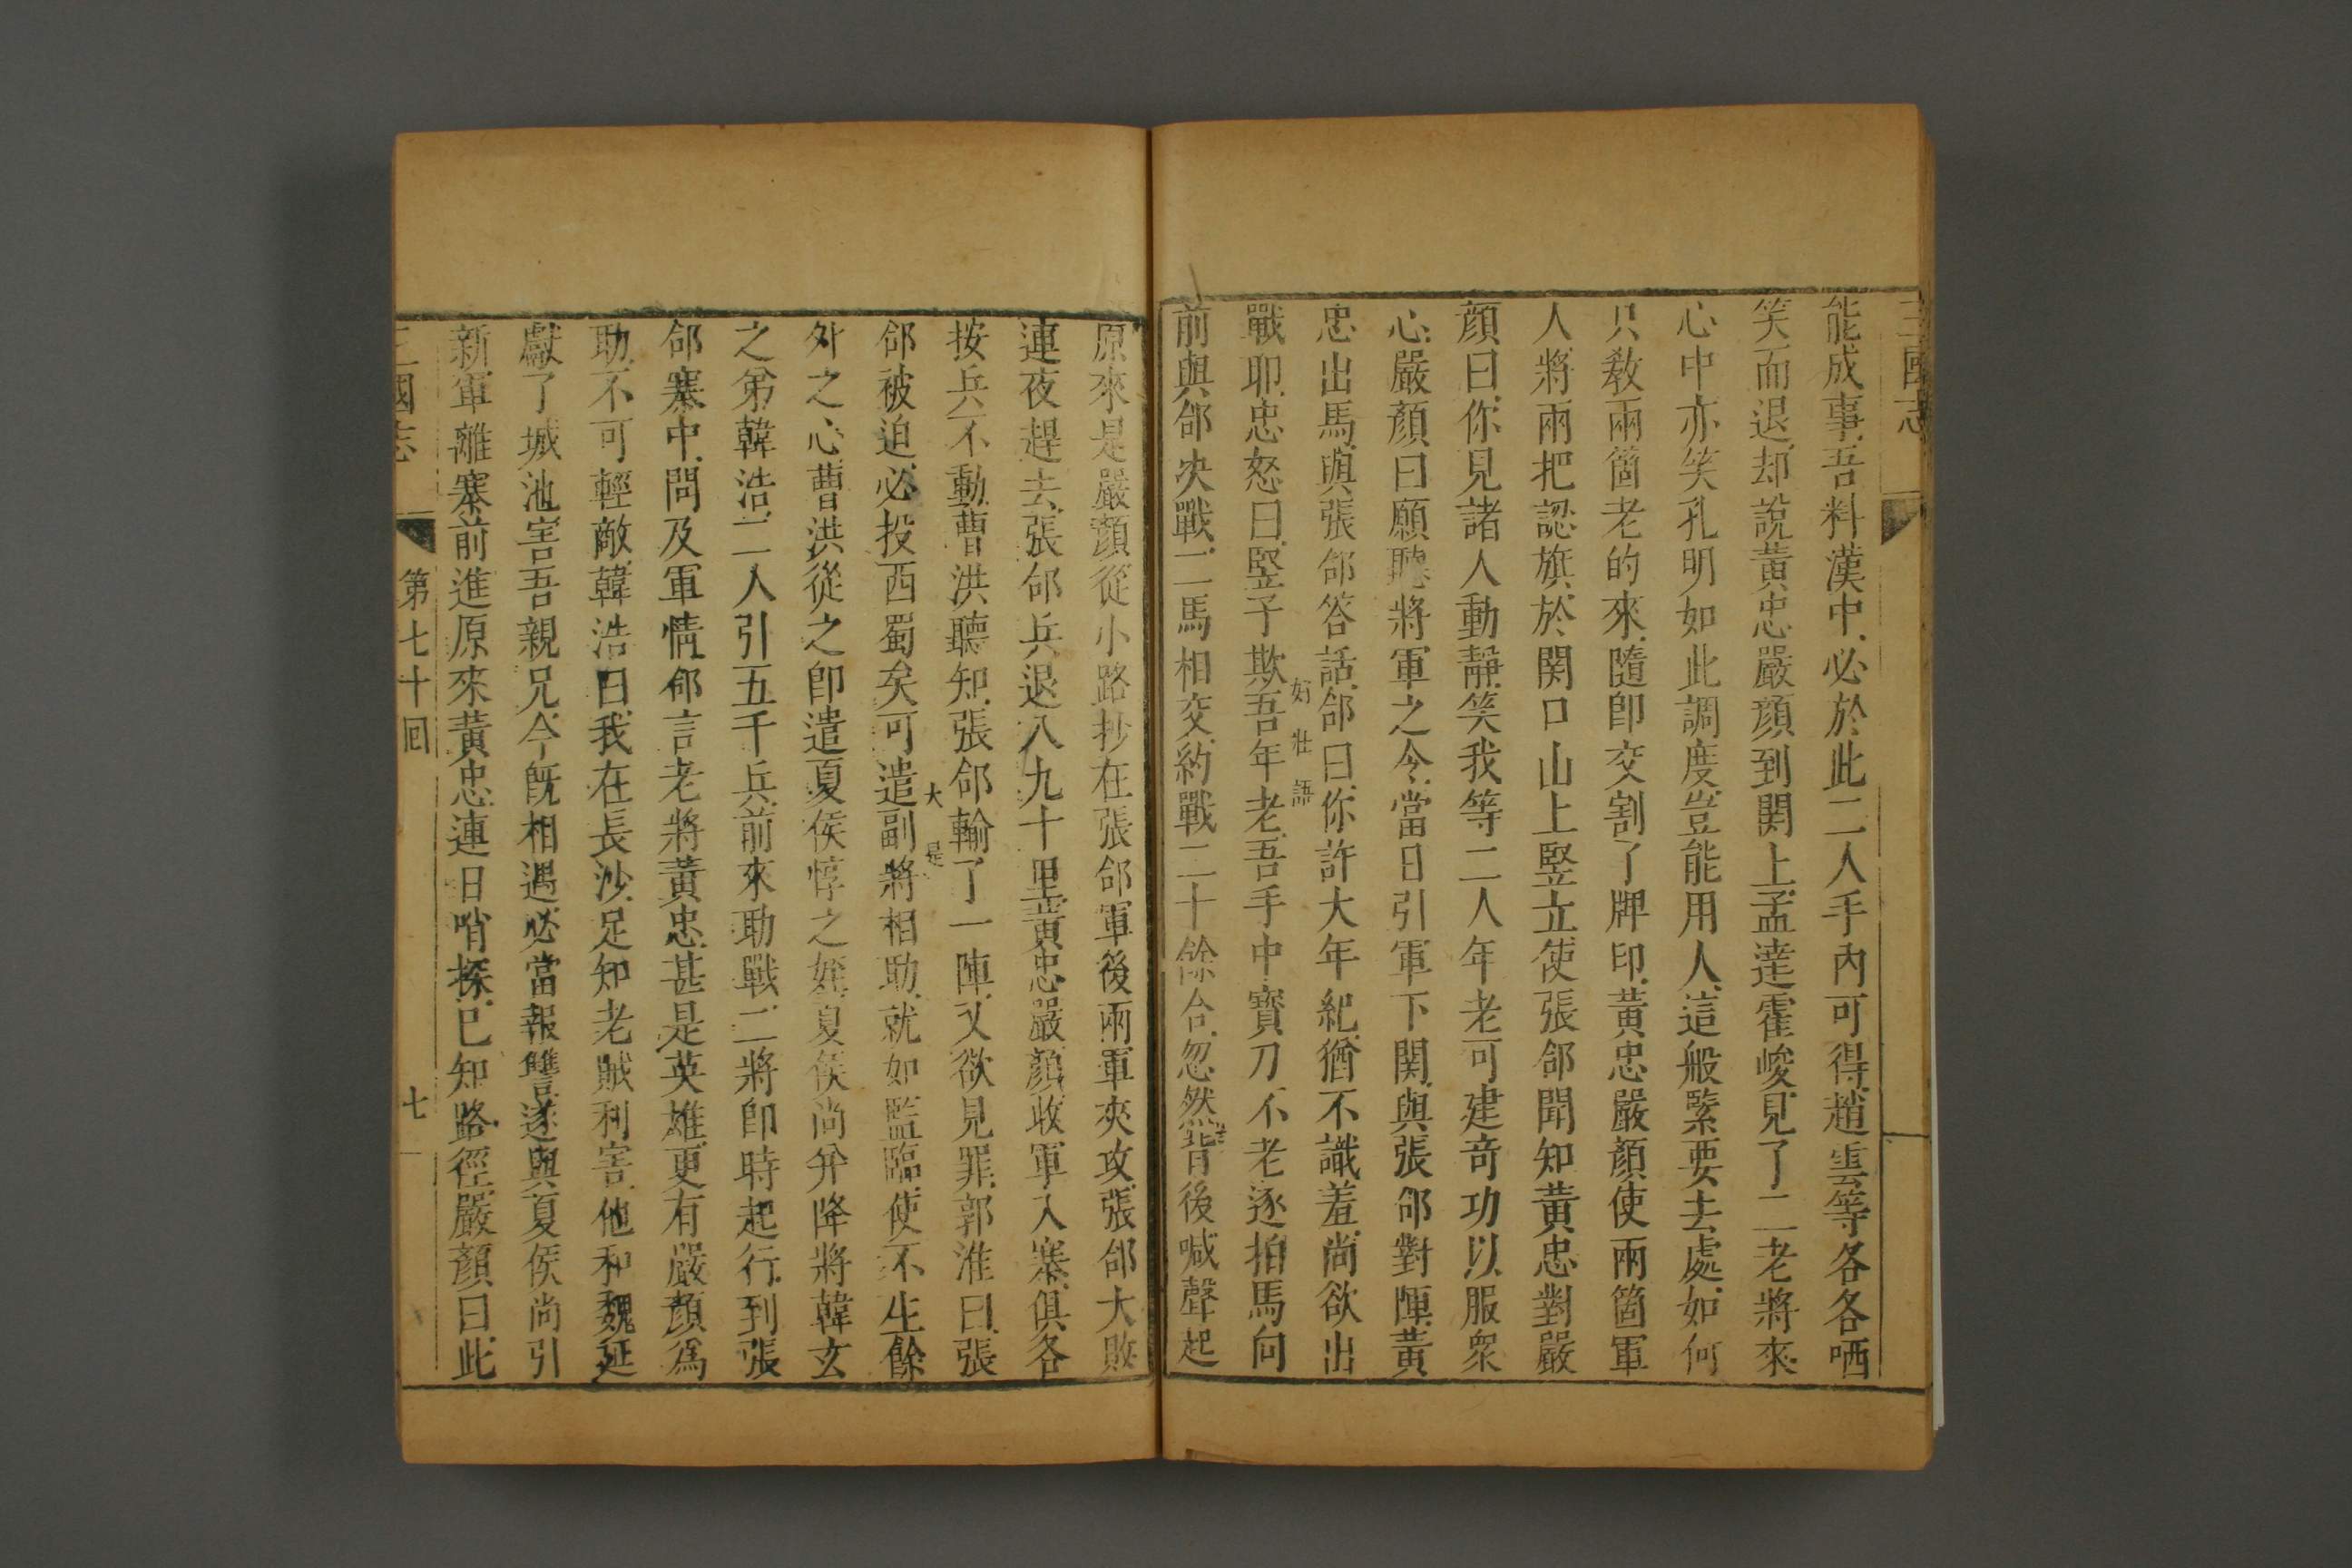 三國志
能成事吾料漢中必於此二人手內可得趙雲等各各哂
笑而退却說黃忠嚴顔到関上孟達霍峻見了二老將來
心中亦笑孔明如此調度豈能用人這般緊要去處如何
只敎兩箇老的來隨卽交割了牌印黃忠嚴顔使兩箇軍
人將兩把認旗於関口山上竪立使張郃聞知黃忠對嚴
顔曰你見諸人動靜笑我等二人年老可建奇功以服衆
心嚴顔曰願聽將軍之令當日引軍下関與張郃對陣黃
忠出馬與張郃答話郃曰你許大年紀猶不識羞尚欲出
好壯語
戰耶忠怒曰竪子欺吾年老吾手中寳刀不老遂拍馬向
前與郃决戰二馬相交約戰二十餘合忽然背後喊聲起
原來是嚴顔從小路抄在張郃軍後兩軍夾攻張郃大敗
連夜趕去張郃兵退八九十里黃忠嚴顔收軍入寨俱各
按兵不動曹洪聽知張郃輸了一陣又欲見罪郭淮曰張
大是
郃被迫必投西蜀矣可遣副將相助就如監臨使不生餘
外之心曹洪從之卽遣夏侯惇之姪夏侯尚并降將韓玄
之弟韓浩二人引五千兵前來助戰二將卽時起行到張
郃寨中問及軍情郃言老將黃忠甚是英雄更有嚴顔爲
助不可輕敵韓浩曰我在長沙足知老賊利害他和魏延
獻了城池害吾親兄今旣相遇必當報讐遂與夏侯尚引
新軍離寨前進原來黃忠連日哨探已知路徑嚴顔曰此
三國志 第七十回 七